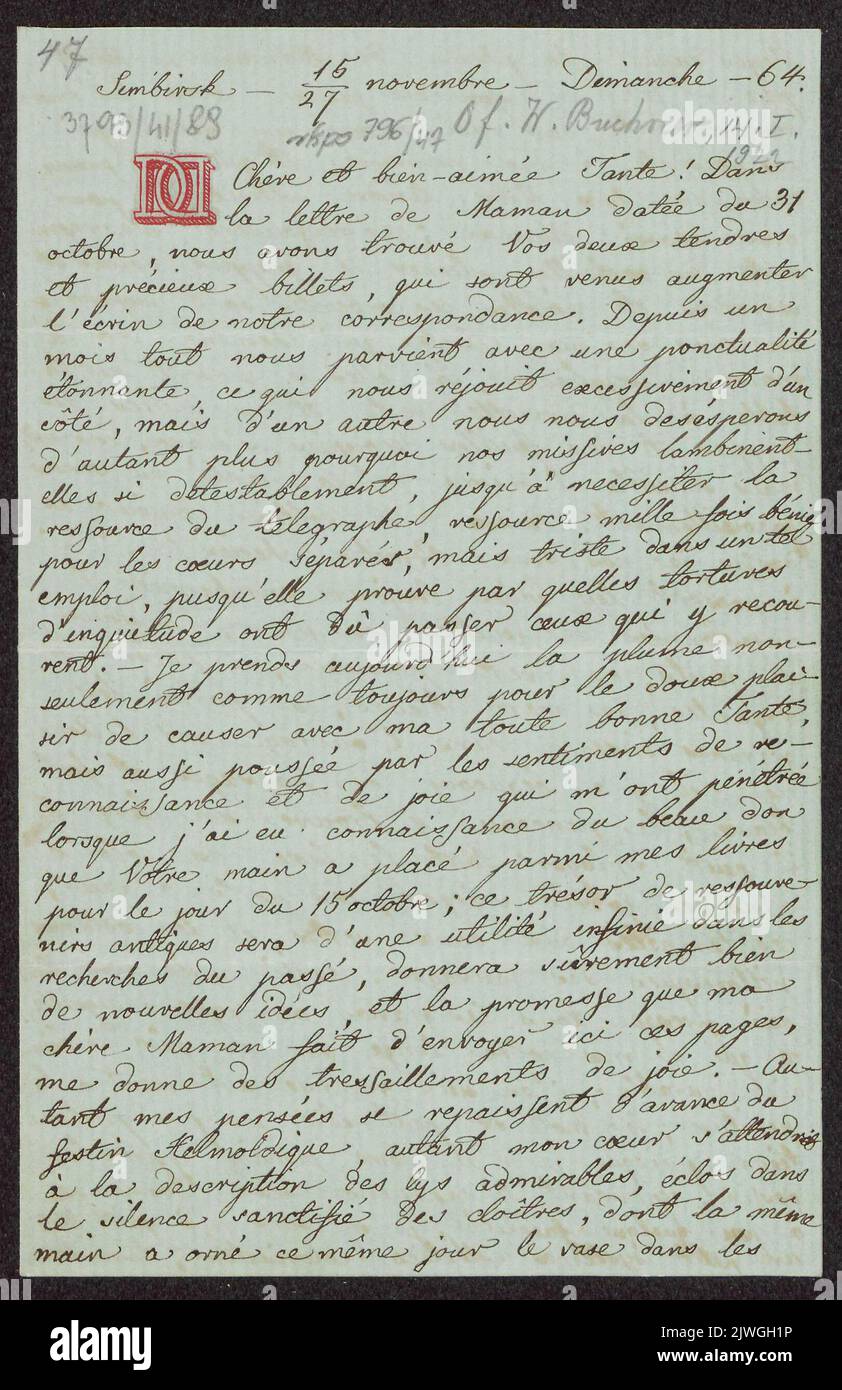 47
Simbirsk — 15/27 novembre — Dimanche — 64.
3793/41/89 rkps 796/47 Of. W. 14. I.
1922
Chère et bien-aimée Tante! Dans
la lettre de Maman datée du 31
octobre, nous avons trouvé Vos deux tendres
et précieux billets, qui sont venus augmenter
l'écrin de notre correspondance. Depuis un
mois tout nous parvient avec une ponctualité
étonnante, ce qui nous réjouit excessivement d'un
côté, mais d'un autre nous nous desésperons
d'autant plus pourquoi nos missives lambinent-
elles si detestablement, jusqu'à necessiter la
ressource du télegraphe, ressource mille fois bénie
pour les cœurs séparés, mais triste dans un tel
emploi, pusqu'elle prouve par quelles tortures
d'inquietude ont dû passer ceux qui y recou-
rent. — Je prends aujourd'hui la plume non-
seulement comme toujours pour le doux plai-
sir de causer avec ma toute bonne Tante,
mais aussi poussée par les sentiments de re-
connaissance et de joie qui m'ont pénétrée
lorsque j'ai eu connaissance du beau don
que Votre main a placé parmi mes livres
pour le jour du 15 octobre; ce trésor de ressouve-
nirs antiques sera d'une utilité infinie dans les
recherches du passé, donnera sûrement bien
de nouvelles idées, et la promesse que ma
chère Maman fait d'envoyer ici ces pages,
me donne des tressaillements de joie. — Au-
tant mes pensées se repaissent d'avance du
festin Helmoldique, autant mon cœur s'attendrit
à la description des lys admirables, éclos dans
le silence sanctifié des cloîtres, dont la même
main a orné ce même jour le vase dans les
alamy
Image ID: 2JWGH1P
www.alamy.com